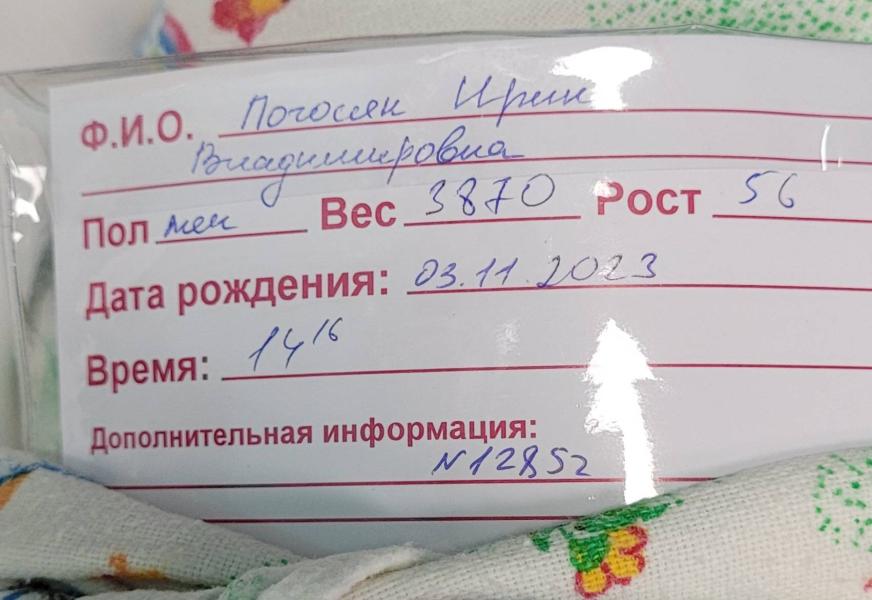 Ф.И.О. Погосян Ирин
Владимировна
Пол жен Вес 3870 Рост 56
Дата рождения: 03.11.2023
Время: 14 16
Дополнительная информация:
N12852